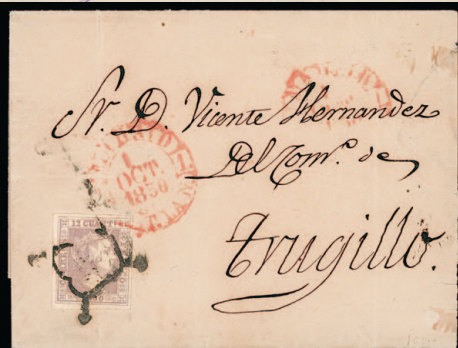 Sr. D. Vicente Hernandez
Del Comº. de
Trugillo.
1
OCT
1850
12 CUARTOS